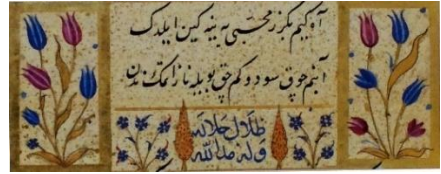 آه کیم محبتی ینه کین ایلدك
آ بنم چوق سودوکم چوق بویله ناز ایتمك ندن
ظلال جلاله
وله مد الله